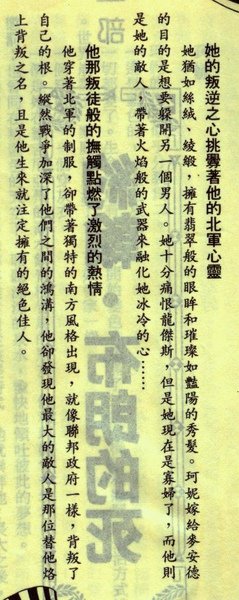 她的叛逆之心挑釁著他的北軍心靈
她猶如絲絨、綾緞，擁有翡翠般的眼眸和璀璨如豔陽的秀髮。珂妮嫁給麥安德
的目的是想要躲開另一個男人。她十分痛恨龍傑斯，但是她現在是寡婦了，而他則
是她的敵人，帶著火焰般的武器來融化她冰冷的心……
他那叛徒般的撫觸點燃了激烈的熱情
他穿著北軍的制服，卻帶著獨特的南方風格出現，就像聯邦政府一樣，背叛了
自己的根。縱然戰爭加深了他們之間的鴻溝，他卻發現他最大的敵人是那位替他烙
上背叛之名，且是他生來就注定擁有的絕色佳人。